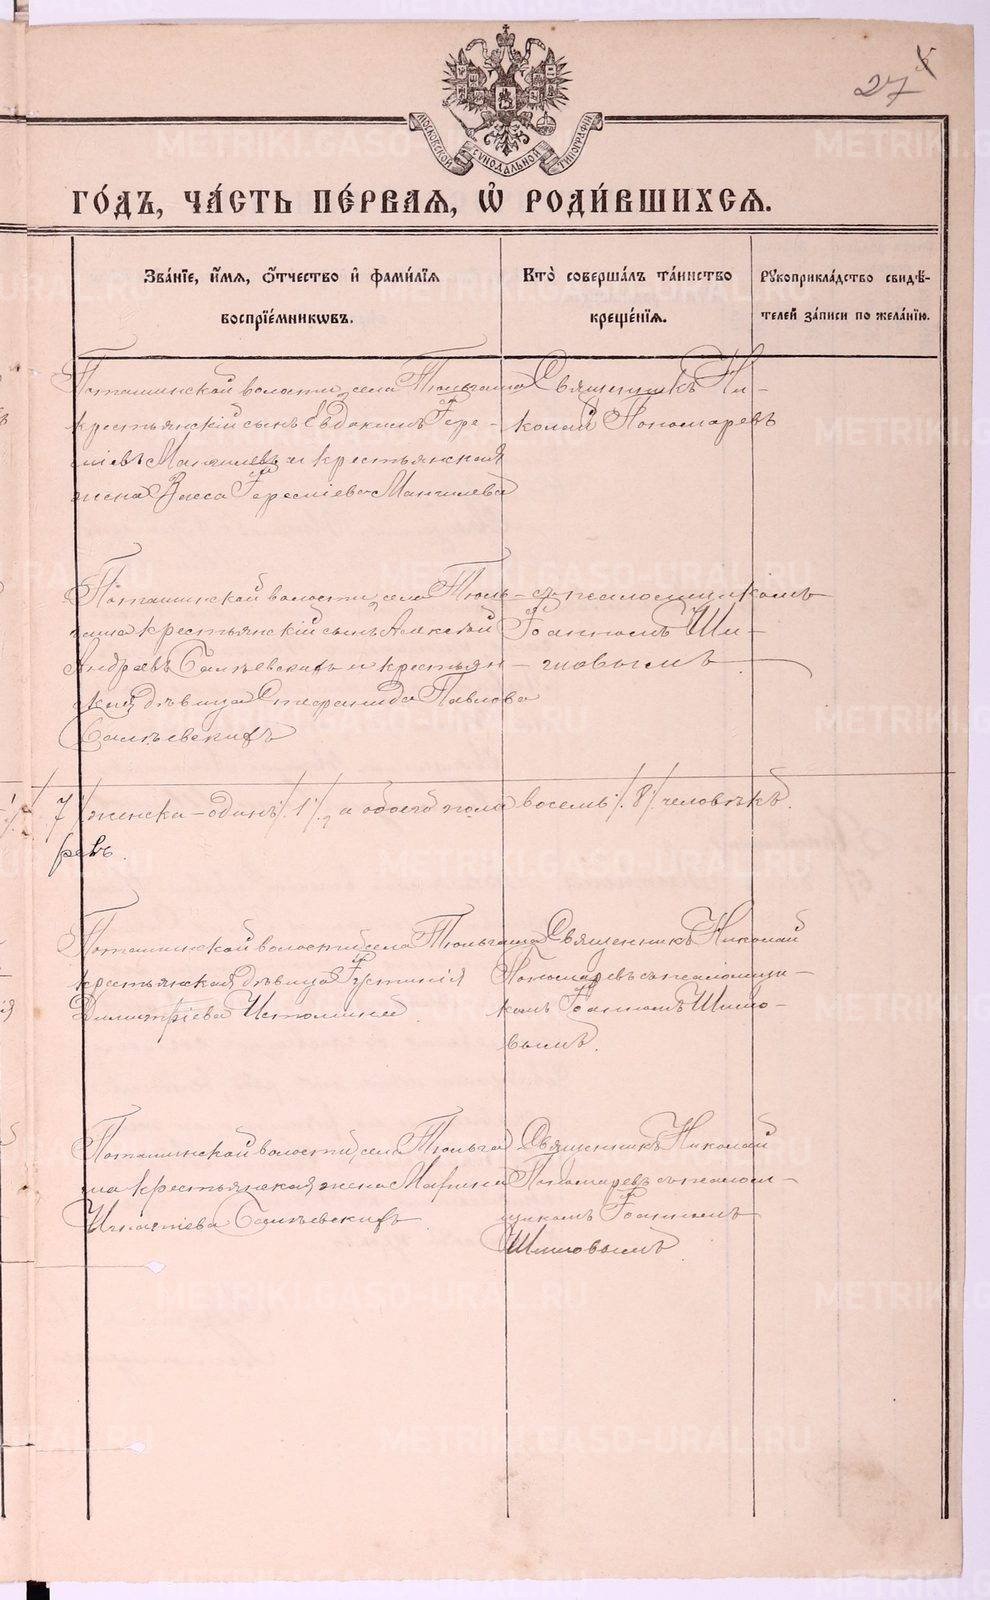 27
МОСКОВСКОЙ СѴНОДАЛЬНОЙ ТИПОГРАФІИ
ГО́ДЪ, ЧА́СТЬ ПЕ́РВАѦ, Ѡ҆ РОДИ́ВШИХСѦ.
Зва́нїе, и҆́мѧ, ѻ҆́тчество и҆ фами́лїѧ
воспрїе́мникѡвъ.
Кто̀ соверша́лъ та́инство
креще́нїѧ.
Рꙋкоприкла́дство свидѣ́-
телей за́писи по жела́нїю.
Поташинской волости, села Тюльгаша
крестьянскій сынъ Евдокимъ
и крестьянская
жена Васса
Священникъ Ни-
колай Пономаревъ
Поташинской волости, села Тюль-
гаша крестьянскій сынъ Алексѣй
Андреевъ и крестьян-
ская дѣвица Стефанида Павлова
съ псаломщикомъ
Іоанномъ Ши-
ловымъ
7/ женска – одинъ /1/, а обоего пола восемь /8/ человѣкъ.
Поташинской волости села Тюльгаша
крестьянская дѣвица Іустинія
Димитріева Истомина
Священникъ Николай
Пономаревъ съ псаломщи-
комъ Іоанномъ Шило-
вымъ.
Поташинской волости, села Тюльга
ша крестьянская жена Марина
Игнатіева
Священникъ Николай
Пономаревъ съ псалом-
щикомъ Іоанномъ
Шиловымъ
METRIKI.GASO-URAL.RU